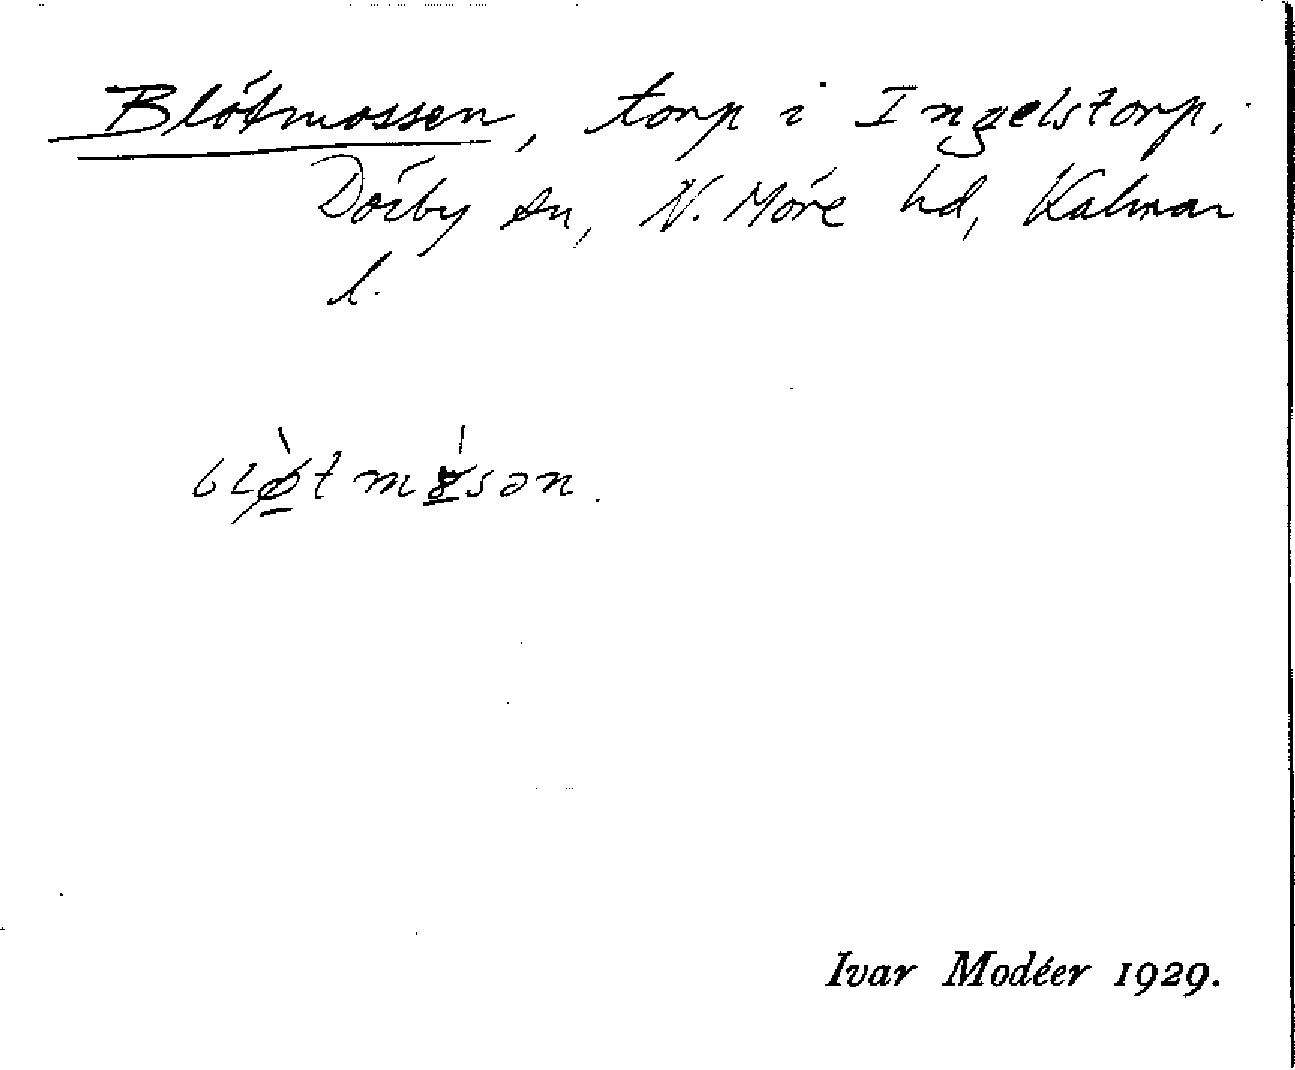 Blötmossen, torp i Ingelstorp,
Dörby sn, N. Möre hd, Kalmar
l.
Ivar Modéer 1929.